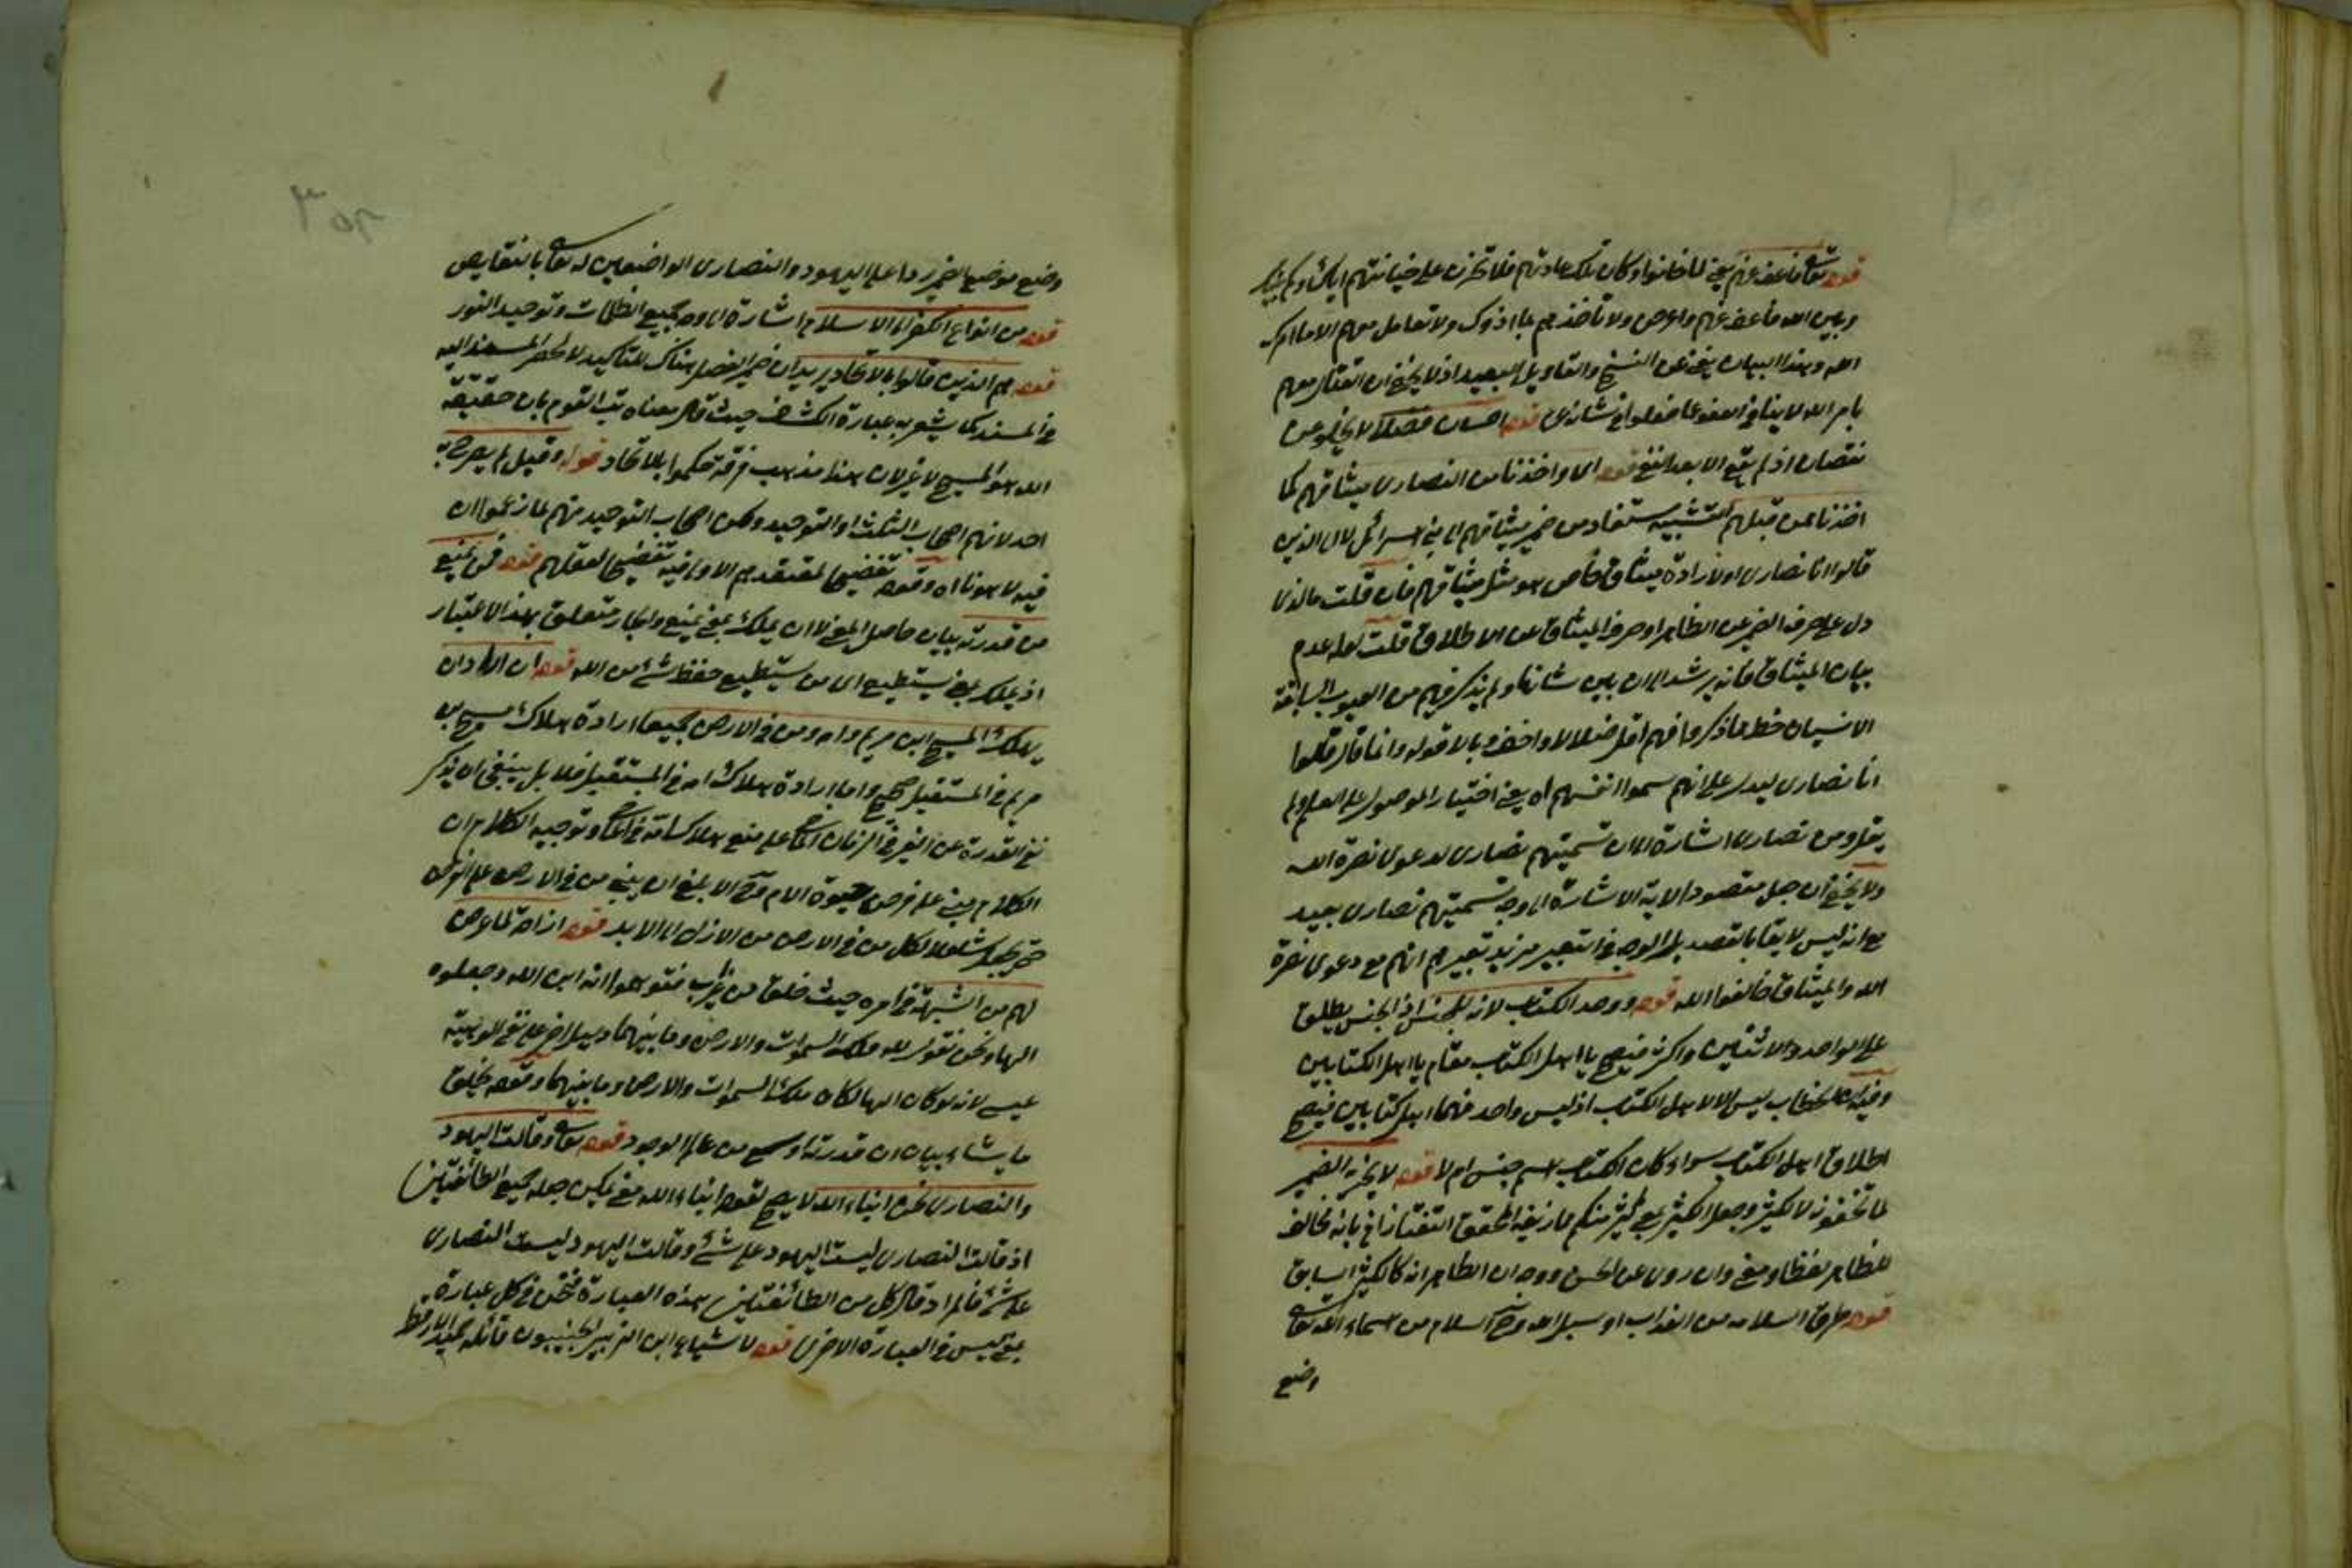 قوله تعالى فاعف عنهم يعني لما خانوا وكان تلك عادتهم فلا تحزن على خيانتهم اياك
وبين الله فاعف عنهم واعرض ولا تأخذهم بما اذوك ولا تعامل معهم الا ما امرك
الله وهذا البيان يغني عن النسخ والتأويل البعيد اذ لا يخفى ان القتال معهم
بامر الله لا ينافي العفو عما فعلوا في شأنه قوله احسان فضلا لا يخلو عن
نقصان اذ لم يقع الا بعد النفي قوله اى واخذنا من النصارى ميثاقهم كما
اخذنا ممن قبلهم التشبيه مستفاد من ضمير ميثاقهم الى بني اسرائيل لا الى الذين
قالوا انا نصارى اولا رادة ميثاق خاص هو مثل ميثاقهم فان قلت ما الذى
دل على صرف الضمير عن الظاهر او صرف الميثاق عن الاطلاق قلت لعله عدم
بيان الميثاق فانه يرشد الى ان بين شأنها ولم يذكر فيهم من العيوب السابقة
الا نسيان حظ مما ذكروا فهم اقل ضلالا واخف وبالا قوله وانما قال قالوا
انا نصارى ليدل على انهم سموا انفسهم اه يعني اختيار الموصول على العلم ولم
يقل ومن نصارى اشارة الى ان تسميتهم نصارى لدعوى نصرة الله
ولا يخفى ان جل مقصود الاية الاشارة الى وجه تسميتهم نصارى بعيد
مع انه ليس لايقا بالقصد بل الوجه في التعبير مزيد تعييرهم انهم مع دعوى نصرة
الله والميثاق خالفوا الله قوله ووحد الكتاب لانه للجنس اذ الجنس يطلق
على الواحد والاثنين واكثر فيصح يا اهل الكتاب مقام يا اهل الكتابين
وفيه ان الخطاب ليس الا لاهل الكتاب اذ ليس واحد منهما اهل كتابين فيصح
اطلاق اهل الكتاب سواء كان الكتاب اسم جنس ام لا قوله لا يخبر الضمير
لما تخفونه لا لكثير وجعل الكثير بمعنى كثير منكم مما زيفه المحقق التفتازاني بانه مخالف
للظاهر لفظا ومعنى وان روى عن الحسن ووجه ان الظاهر انه كالكثير السابق
قوله طرق السلامة من العذاب او سبل الله وضع السلام من اسماء الله تعالى
وضع
وضع موضع الضمير ردا على اليهود والنصارى الواضعين له تعالى بالنقايص
قوله من انواع الكفر الى الاسلام اشارة الى وجه جمع الظلمات وتوحيد النور
قوله هم الذين قالوا بالاتحاد يريد ان ضمير الفصل هناك للتأكيد لا لحصر المسند اليه
في المسند كما يشعر به عبارة الكشاف حيث قال معناه بت القوم بان حقيقة
الله هو المسيح لا غير لان هذا مذهب فرقة حكموا بالاتحاد قوله وقيل لم يصرح به
احد لانهم اصحاب التثليث او التوحيد ولكن اصحاب التوحيد منهم لما زعموا ان
فيه لاهوتا اه وقوله تفضيحا لمعتقدهم الاولى فيه تفضيحا لعقلهم قوله فمن يمنع
من قدرته بيان حاصل المعنى لا ان يملك بمعنى يمنع والجار متعلق بهذا الاعتبار
اذ يملك بمعنى يستطيع اى من يستطيع حفظ شئ من الله قوله ان اراد ان
يهلك المسيح ابن مريم وامه ومن في الارض جميعا ارادة هلاك مسيح بن
مريم في المستقبل صحيح واما ارادة هلاك امه في المستقبل فلا بل ينبغي ان يذكر
نفي القدرة عن الغير في الزمان الماضى على منع هلاك امه في الماضى وتوجيه الكلام ان
الكلام مبني على فرض حيوة الام وح الابلغ ان يبني من في الارض على الفرض
حتى يجعل شاملا لكل من في الارض من الازل الى الابد قوله ازاحة لما عرض
لهم من الشبهة في امره حيث خلق من غير اب فتوهموا انه ابن الله وجعلوه
الها ونحن نقول لله ملك السموات والارض وما بينهما دليل اخر على نفي الوهية
عيسى لانه لو كان الها لكان ملك السموات والارض وما بينهما وقوله يخلق
ما يشاء بيان ان قدرته اوسع من عالم الوجود قوله تعالى وقالت اليهود
والنصارى نحن ابناء الله لا يصح لقوله ابناء الله معنى يمكن جعله لجميع الطائفتين
اذ قالت النصارى ليست اليهود على شئ وقالت اليهود ليست النصارى
على شئ فالمراد قال كل من الطائفتين هذه العبارة فنحن في كل عبارة
بمعنى ليس في العبارة الاخرى قوله لاشياع ابن الزبير الخبيبون قائله حميد الارقط